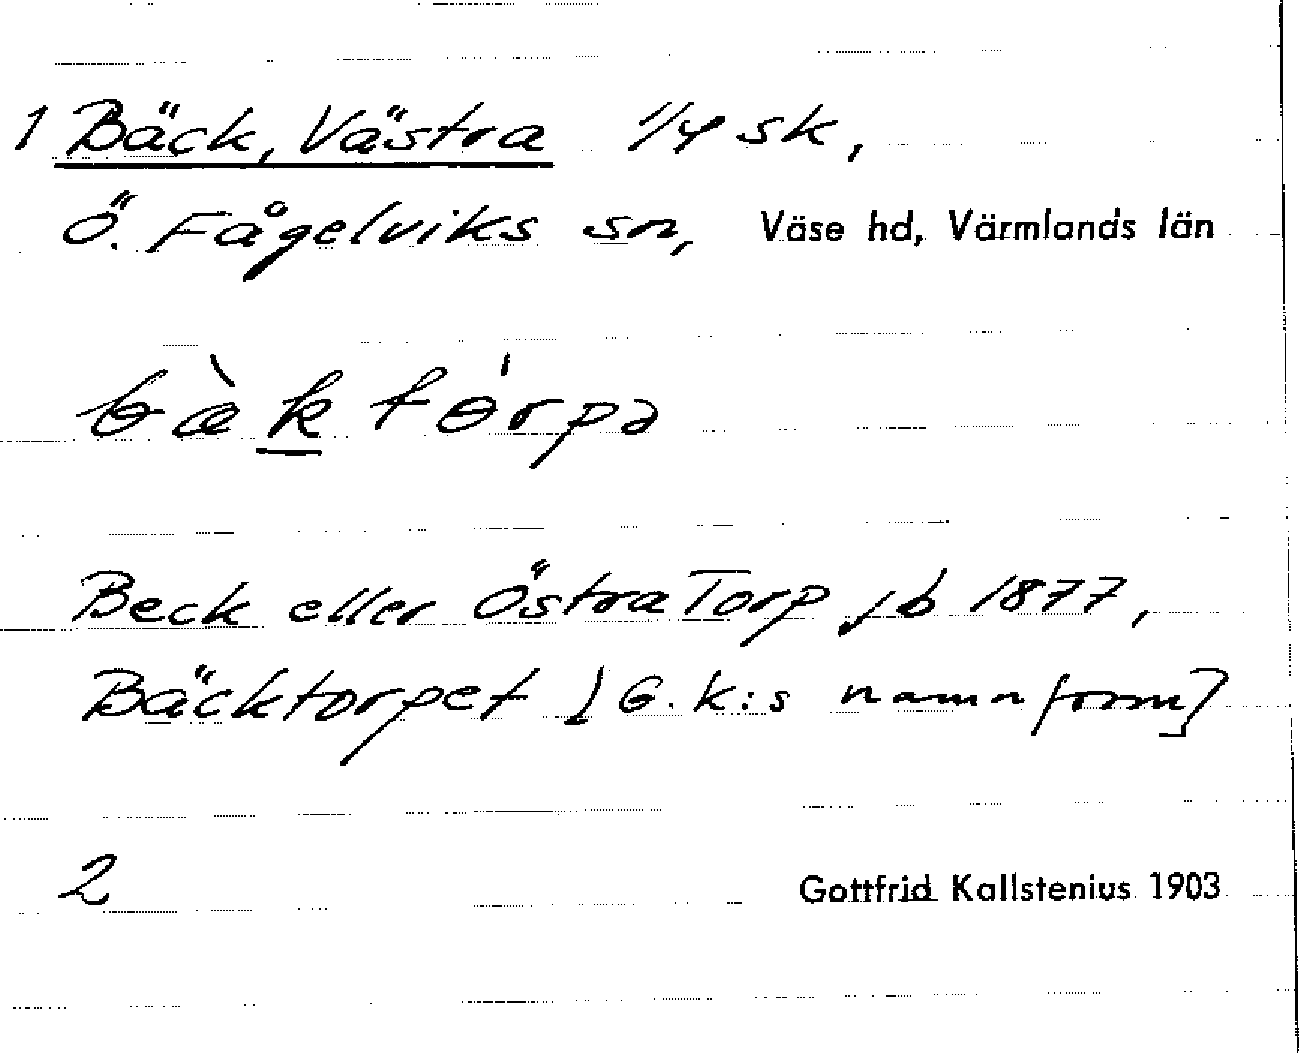 1 Bäck, Västra 1/4 sk,
Ö. Fågelviks sn, Väse hd, Värmlands län
bæ̀k tɵ́rpə
Beck eller Östra Torp jb 1877,
Bäcktorpet [G.k:s namnform]
2 Gottfrid Kallstenius 1903